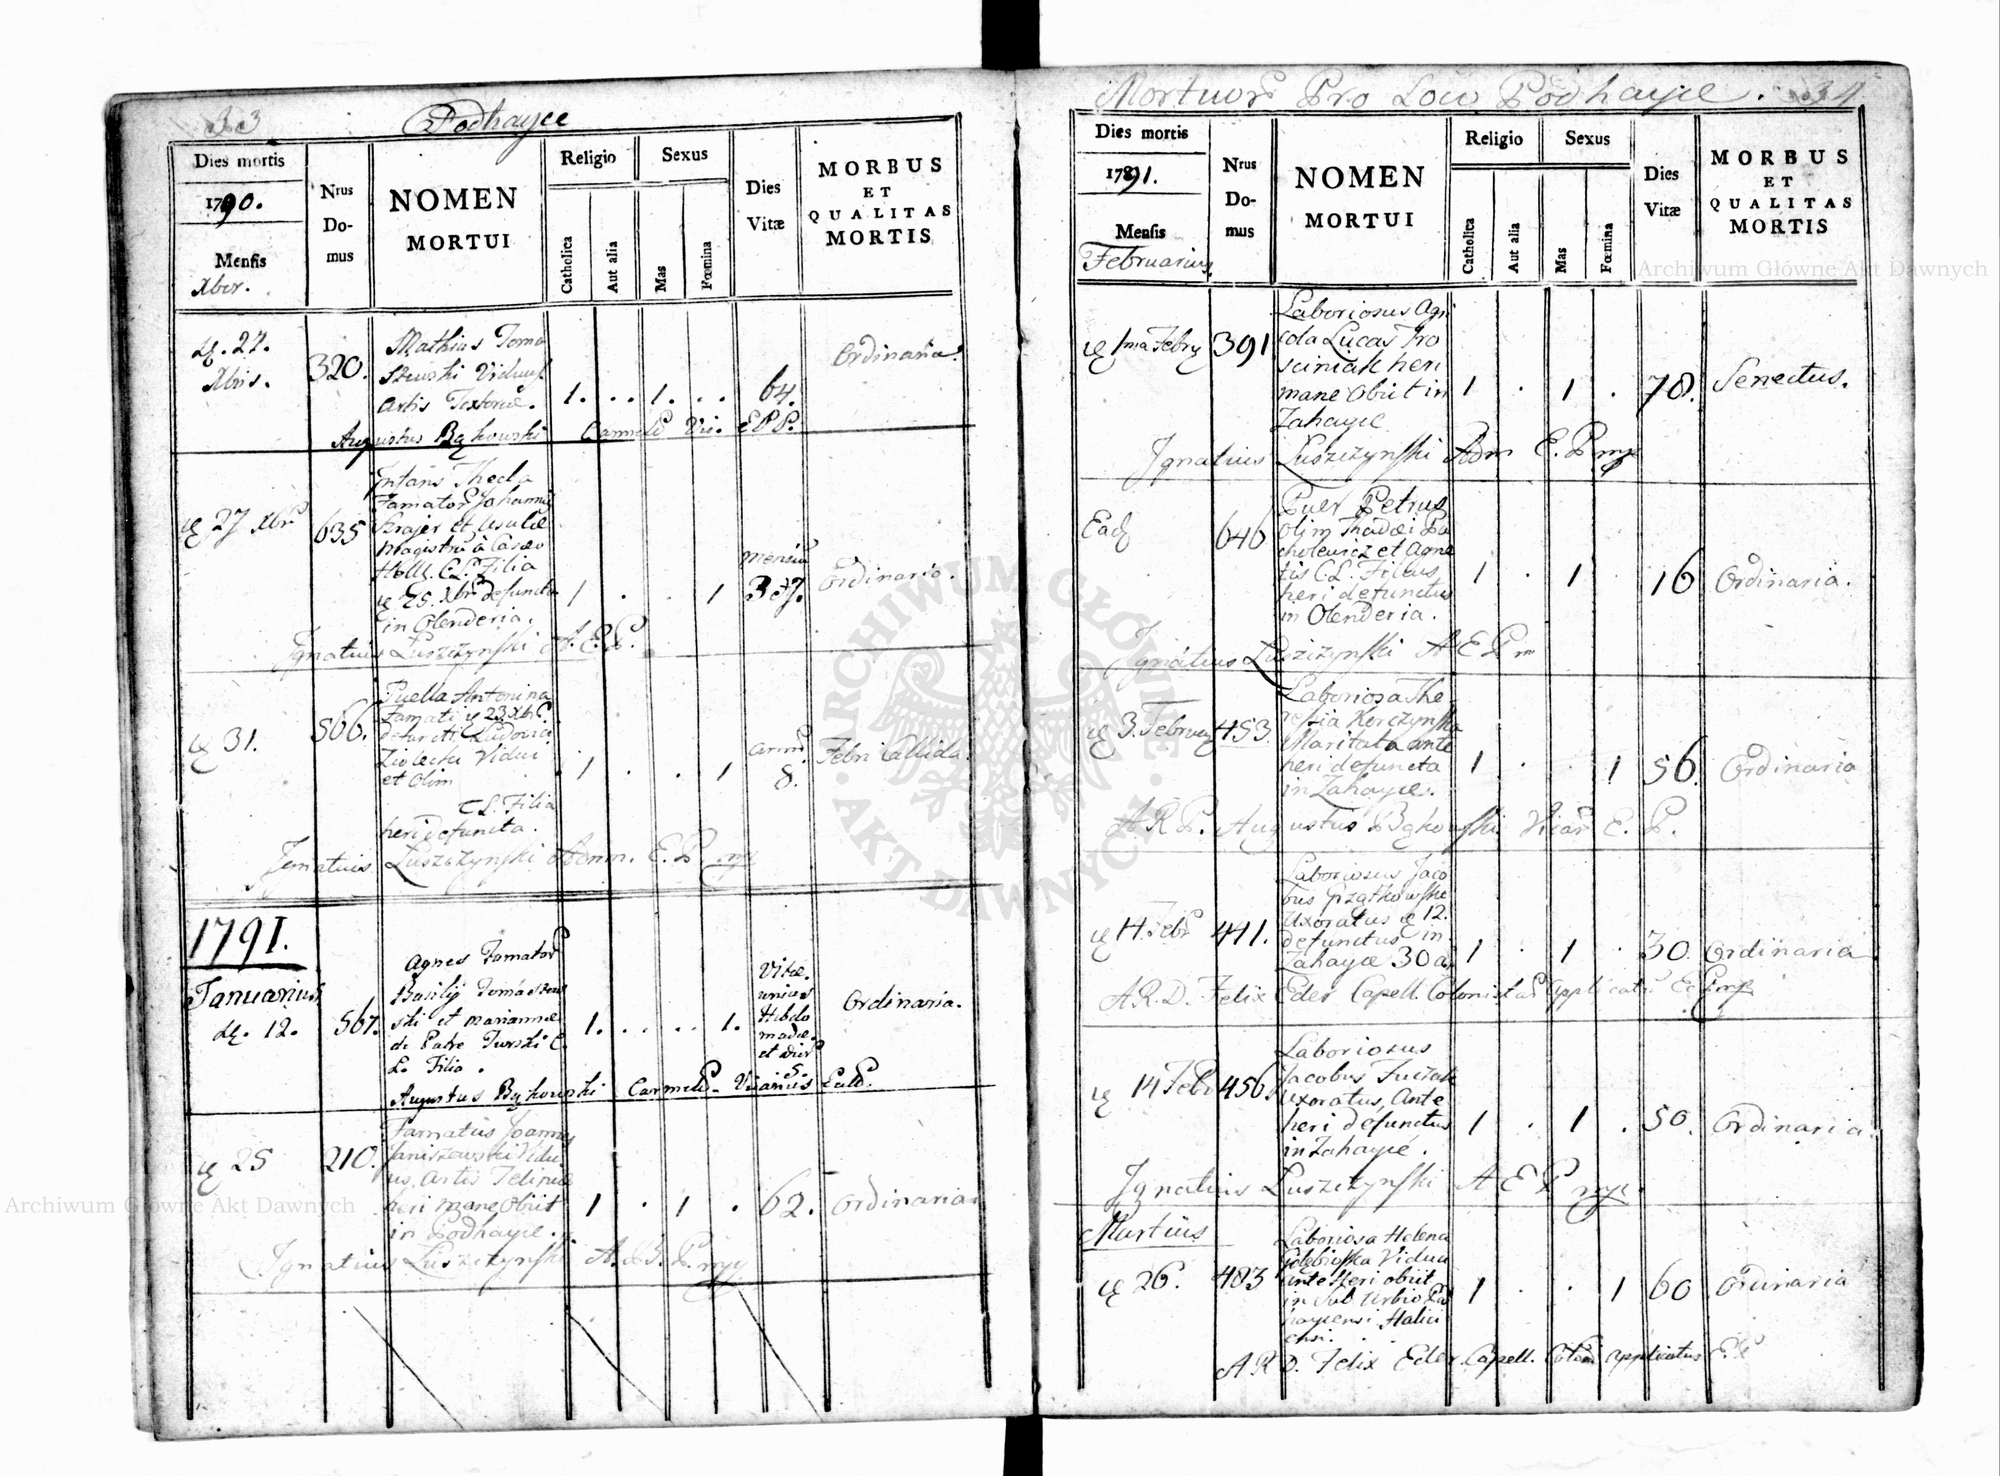 33
Podhayce
Dies mortis
1790.
Mensis
Xber.
Nrus
Do-
mus
NOMEN
MORTUI
Religio
Catholica
Aut alia
Sexus
Mas
Fœmina
Dies
Vitæ
MORBUS
ET
QUALITAS
MORTIS
27.
Xbris.
320.
Mathias Toma
szewski Viduus
artis Textoriæ.
1. . . 1. . .
64.
Ordinaria.
Augustus Bąkowski Carmel Vic. E P P.
27 Xbr
635
Infans Thecla
Famator Johannis
Szrajer et Ursulæ
Magistri a Caseo
Holl. C. L. Filia
25. Xbr defuncta
in Olenderia.
1 . . 1
Mensiu
3 et 7.
Ordinaria.
Ignatius Luszczynski A. E. P.
31.
566.
Puella Antonina
Famati 23 Xbr
defuncti Ludovici
Ziolecki Vidui
et olim
C L. Filia
heri defuncta.
1 . . 1
annor
8.
Febri Callida.
Ignatius Luszczynski Adm. E. P mp
1791.
Januarius
12.
567.
Agnes Famator
Basilii Tomaszew
ski et Mariannæ
de Patre Turski C.
L. Filia.
1. . . . . 1.
Vitæ
unius
Hebdo
madæ
et dier
5.
Ordinaria.
Augustus Bąkowski Carmelit. Vicarius Eccl.
25
210.
Famatus Joannes
Janiszewski Vidu
us, Artis
heri mane obiit
in Podhayce.
1 . 1 .
62.
Ordinaria
Ignatius Luszczynski A. E. P. mp
Mortuor Pro Loco Podhayce. 34
Dies mortis
1791.
Mensis
Februarius
Nrus
Do-
mus
NOMEN
MORTUI
Religio
Catholica
Aut alia
Sexus
Mas
Fœmina
Dies
Vitæ
MORBUS
ET
QUALITAS
MORTIS
1ma Febry
391
Laboriosus Agri
cola Lucas Pro
sciniak heri
mane obiit in
Zahayce
1 . 1 .
78.
Senectus.
Ignatius Luszczynski Adm E. P mp
Ead
646
Puer Petrus
olim Thadæi Pa
cholewicz et Agne
tis C. L. Filius
heri defunctus
in Olenderia.
1 . 1
16
Ordinaria.
Ignatius Luszczynski A E P m
3. February
453.
Laboriosa The
resia Korczynska
Maritata ante
heri defuncta
in Zahayce.
1 . . 1
56.
Ordinaria
A. R. P. Augustus Bąkowski Vicar E. P.
14. Febr
441.
Laboriosus Jaco
bus Grzątkowski
Uxoratus 12.
defunctus in
Zahayce 30 a
1 . 1 .
30.
Ordinaria
A. R. D. Felix Eder Capell. Colonist applicat E P mp
14 Febr
456.
Laboriosus
Jacobus Tuczak
uxoratus, Ante
heri defunctus
in Zahayce.
1 . 1 .
50.
Ordinaria.
Ignatius Luszczynski A E P mp.
Martius
26.
483
Laboriosa Helena
Gołębioska Vidua
ante Heri obiit
in Sub Urbio Pod
hayciensi Halici
ensi.
1 . . 1
60
Ordinaria
A R D. Felix Eder Capell. Colon applicatus E. P
Archiwum Główne Akt Dawnych
Archiwum Główne Akt Dawnych
ARCHIWUM GŁÓWNE
AKT DAWNYCH